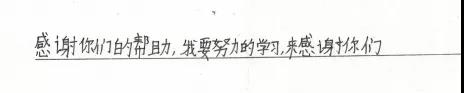 感谢你们的帮助,我要努力的学习,来感谢你们